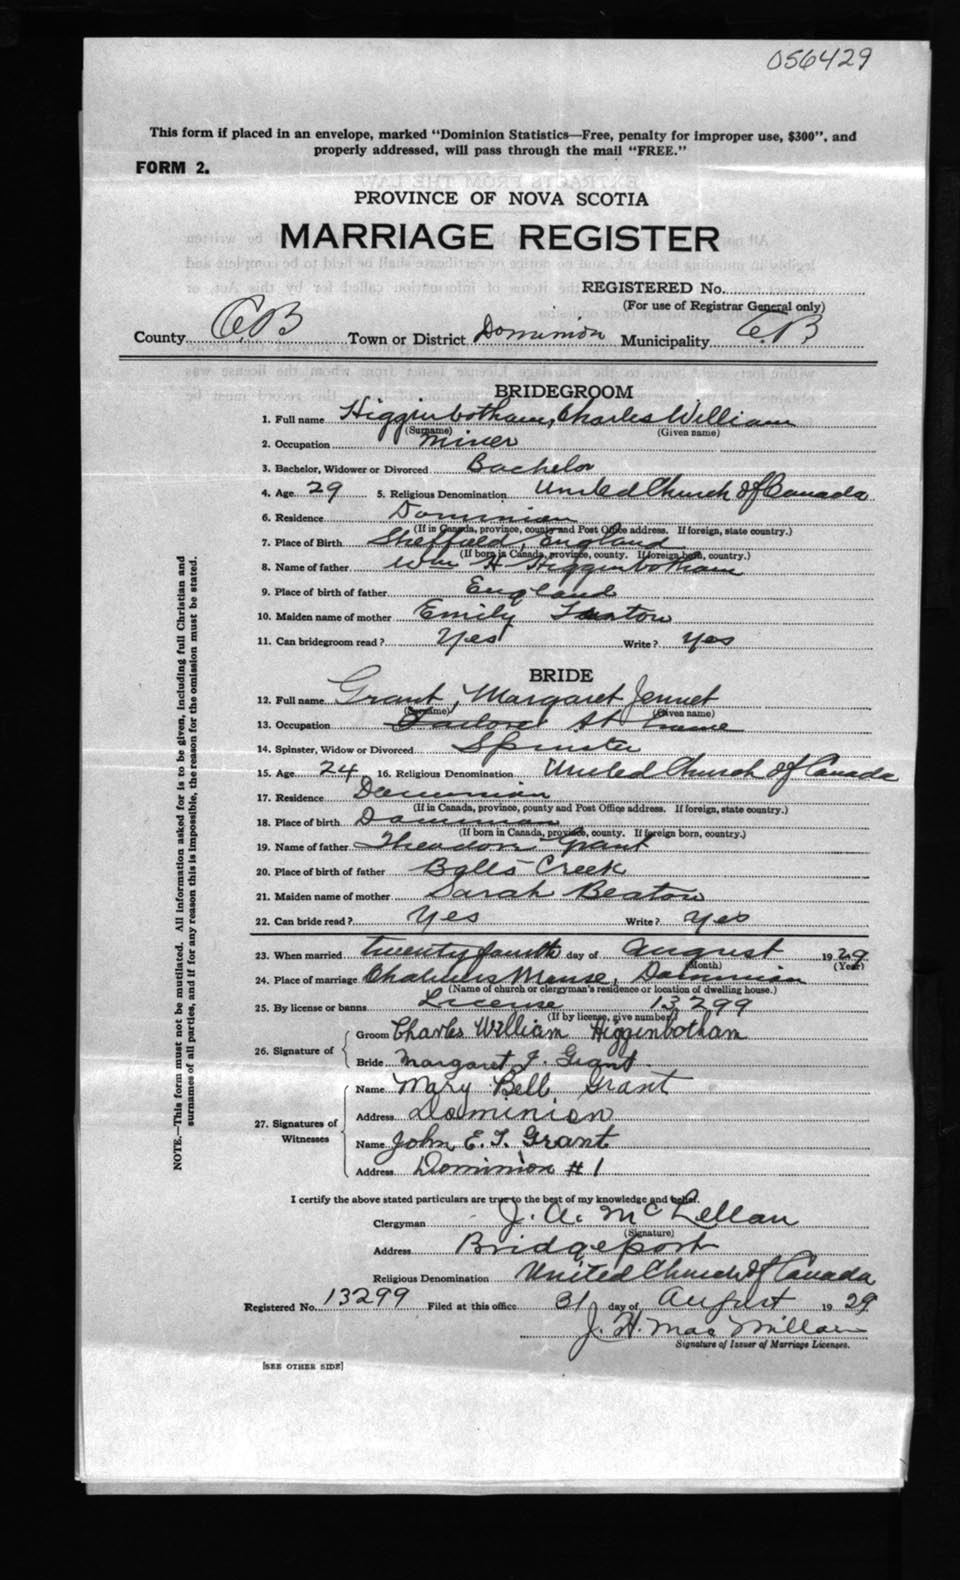 056429
This form if placed in an envelope, marked "Dominion Statistics—Free, penalty for improper use, $300", and
properly addressed, will pass through the mail "FREE."
FORM 2.
PROVINCE OF NOVA SCOTIA
MARRIAGE REGISTER
REGISTERED No.
(For use of Registrar General only)
County C.B Town or District Dominion Municipality C.B.
BRIDEGROOM
1. Full name Higginbotham, Charles William
(Surname) (Given name)
2. Occupation miner
3. Bachelor, Widower or Divorced Bachelor
4. Age 29 5. Religious Denomination United Church of Canada
6. Residence Dominion
(If in Canada, province, county and Post Office address. If foreign, state country.)
7. Place of Birth Sheffield, England
(If born in Canada, province, county. If foreign born, country.)
8. Name of father Wm H Higginbotham
9. Place of birth of father England
10. Maiden name of mother Emily
11. Can bridegroom read? Yes Write? yes
BRIDE
12. Full name Grant, Margaret Jennet
(Surname) (Given name)
13. Occupation at home
14. Spinster, Widow or Divorced Spinster
15. Age 24 16. Religious Denomination United Church of Canada
17. Residence Dominion
(If in Canada, province, county and Post Office address. If foreign, state country.)
18. Place of birth Dominion
(If born in Canada, province, county. If foreign born, country.)
19. Name of father Theodore Grant
20. Place of birth of father Balls Creek
21. Maiden name of mother Sarah Beaton
22. Can bride read? Yes Write? yes
23. When married twenty fourth day of August 1929
(Month) (Year)
24. Place of marriage Chalmers Manse, Dominion
(Name of church or clergyman's residence or location of dwelling house.)
25. By license or banns License 13299
(If by license, give number)
26. Signature of Groom Charles William Higginbotham
Bride Margaret J. Grant
27. Signatures of Witnesses Name Mary Bell Grant
Address Dominion
Name John E. T. Grant
Address Dominion # 1
I certify the above stated particulars are true to the best of my knowledge and belief.
Clergyman J. A. McLellan
(Signature)
Address Bridgeport
Religious Denomination United Church of Canada
Registered No. 13299 Filed at this office 31 day of August 1929
J. H. MacMillan
Signature of Issuer of Marriage Licenses.
[SEE OTHER SIDE]
NOTE.—This form must not be mutilated. All information asked for is to be given, including full Christian and
surnames of all parties, and if for any reason this is impossible, the reason for the omission must be stated.